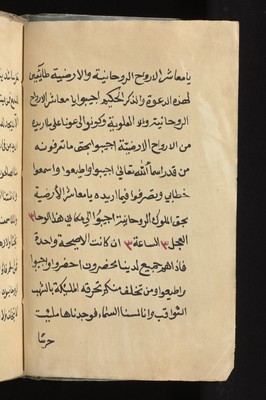 يا معاشر الارواح الروحانية والارضية طايعين
لهذه الدعوة والذكر الحكيم اجيبوا يا معاشر الارواح
الروحانية والعلوية وكونوا لي عونا على ما اريده
من الارواح الارضية اجيبوا بحق ما تعرفونه
من قدر اسما الله تعالى اجيبوا واطيعوا واسمعوا
خطابي وتصرفوا فيما اريده يا معاشر الأرضية
بحق الملوك الروحانية اجيبوا الى مكاني هذا الوحا ٣
العجل ٣ الساعة ٣ ان كانت الا صيحة واحدة
فاذا هم جميع لدينا محضرون احضروا واجيبوا
واطيعوا ومن تخلف منكم تحرقه المليكة بالشهب
الثواقب وانا لمسنا السماء فوجدناها مليت
حرسا